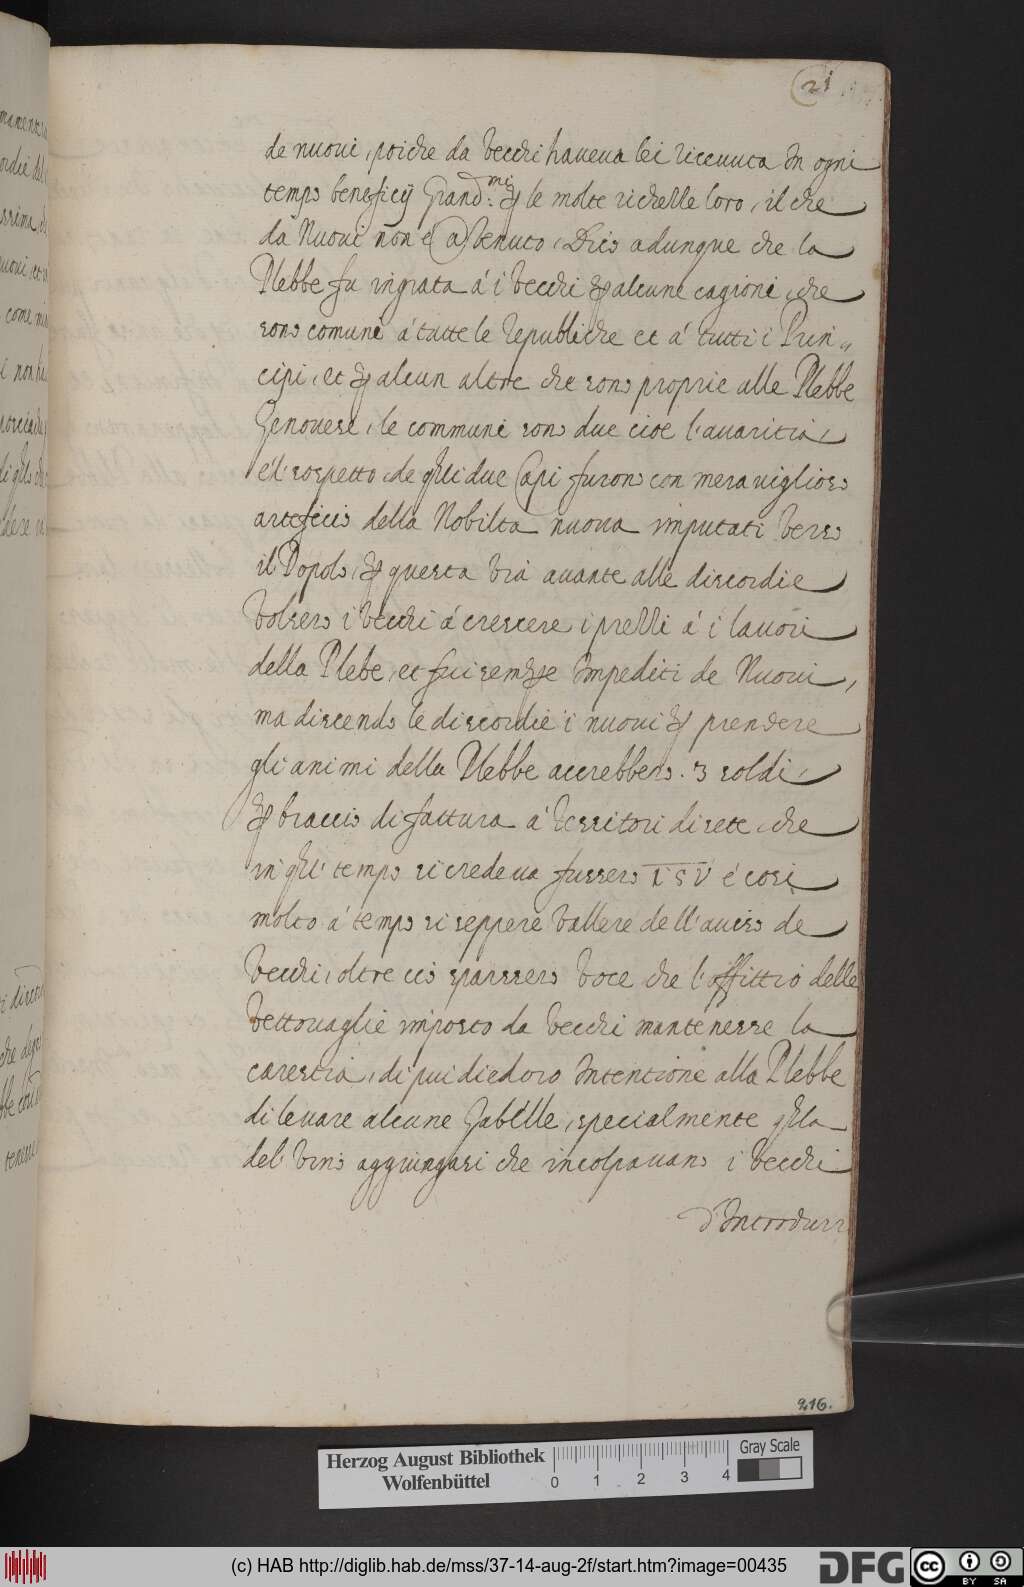 21
de nuoui, poiche da Vecchi haueua lei riceuuta In ogni
temps beneficij Grand.mi ꝑ le molte richezze loro, il che
da Nuoui non è (a)Venuto, Dico adunque che la
Plebbe fu ingrata á i Vecchi ꝑ alcune cagioni, che
sono comuni á tutte le republiche et á tutti i Prin„
cipi, et ꝑ alcun altre che sono proprie alle Plebbe
Genouese, le communi sono due cioe l'auaritia,
é'l sospetto, de qlli due Capi furono con merauiglioso
arteficio della Nobilta nuoua imputati Verso
il Popolo, ꝑ questa Via auante alle discordie
Volsero i Vecchi á crescere i prezzi á i lauori
della Plebe, et fui sempꝑe Impediti de Nuoui,
ma discendo le discordie i nuoui ꝑ prendere
gli animi della Plebbe accrebbero .3 soldi,
ꝑ braccio di fattura a' tessitori di sete, che
in qll' tempo si credeua fussero LSV é cosi
molto á tempo si seppere Vallere dell'auiso de
Vecchi, oltre ciò sparsero Voce che l'offittio delle
Vettouaglie imposto da Vecchi mantenesse la
carestia, di piu diedoro Intentione alla Plebbe
di leuare alcune Gabelle, specialmente qlla
del Vino aggiungasi che incolpauano i Vecchi
d'Introdurr
216.
Herzog August Bibliothek
Wolfenbüttel
0 1 2 3 4
Gray Scale
(c) HAB http://diglib.hab.de/mss/37-14-aug-2f/start.htm?image=00435
DFG
cc BY SA